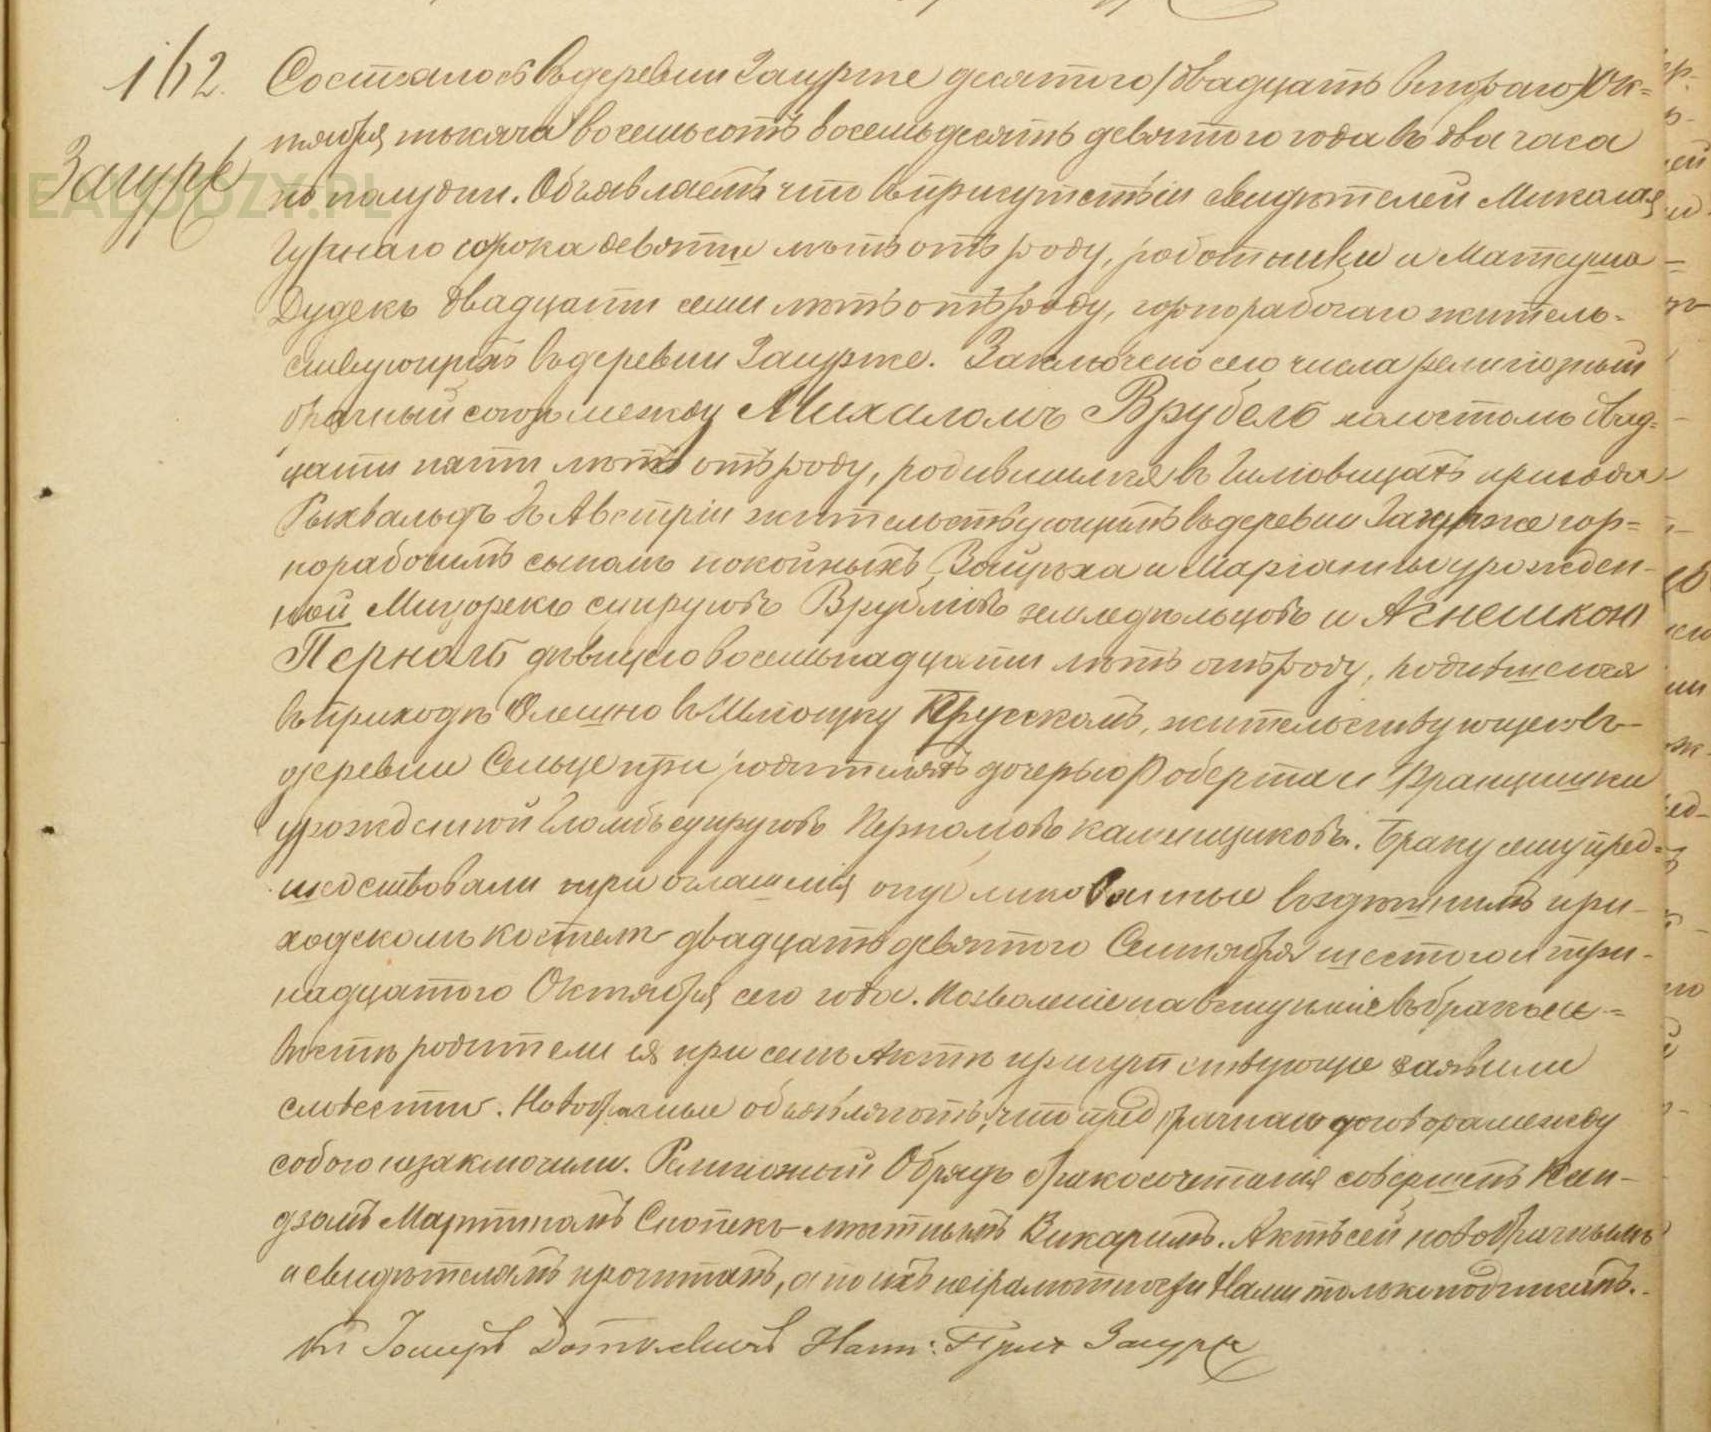 162.
Загурже
Состоялось въ деревни Загурже десятого/двадцать втораго/Ок=
тября тысяча восемьсотъ восемьдесятъ девятого года въ два часа
по полудни. Объявляемъ что въ присутствіи свидѣтелей Миколая
Гурнаго сорока девяти лѣтъ отъ роду, работника и Матеуша
Дудекъ двадцати семи лѣтъ отъ роду, горнорабочаго житель-
ствующихъ въ деревни Загурже. Заключено сего числа религіозный
брачный союзъ между Михаломъ Врубель холостомъ двад=
цати пяти лѣтъ отъ роду, родившимся въ Гиловицахъ прихода
Рыхвальдъ въ Австріи жительствующимъ въ деревни Загурже гор=
норабочимъ сыномъ покойныхъ Войцѣха и Маріанны урожден-
ной Мизюрекъ супруговъ Врублювъ земледѣльцовъ и Агнешкою
Перналь дѣвицею восемьнадцати лѣтъ отъ роду, родившеюся
въ приходѣ Олешно въ Шліонску Прусскомъ, жительствующею въ
деревни Сельце при родителяхъ дочерью Роберта и Францишки
урожденной Гломбъ супруговъ Перналовъ каменщиковъ. Браку сему пред=
шедствовали три оглашенія опубликованные въ здѣшнимъ при-
ходскомъ костелѣ двадцать девятого Сентября шестого и три-
надцатого Октября сего года. Позволеніе на вступленіе въ бракъ не=
вѣстѣ родители ея при семъ Актѣ присутствующіе заявили
словестно. Новобрачные объявляютъ, что предбрачнаго договора между
собою незаключили. Религіозный Обрядъ бракосочетанія совершенъ Ксен-
дзомъ Мартиномъ Скопекъ мѣстнымъ Викаримъ. Актъ сей новобрачнымъ
и свидѣтелямъ прочитанъ, а по ихъ неграмотности Нами только подписанъ.
Наст: Прих Загурже